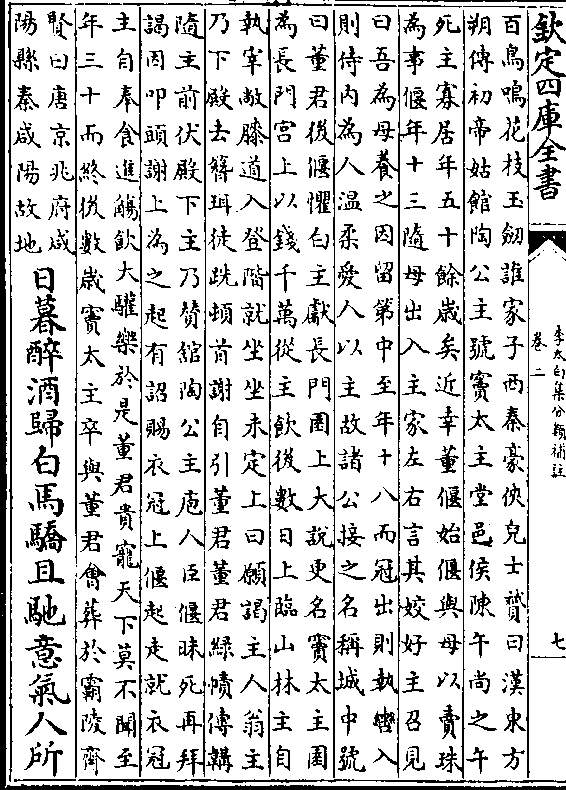 欽定四庫全書
李太白集分類補註
卷二
七
百鳥鳴花枝玉劒誰家子西秦豪俠兒士贇曰漢東方
朔傳初帝姑館陶公主號竇太主堂邑侯陳午尚之午
死主寡居年五十餘歲矣近幸董偃始偃與母以賣珠
為事偃年十三隨母出入主家左右言其姣好主召見
曰吾為母養之因留第中至年十八而冠出則執轡入
則侍内為人温柔愛人以主故諸公接之名稱城中號
曰董君後偃懼白主獻長門園上大說更名竇太主園
為長門宮上以錢千萬從主飲後數日上臨山林主自
執宰敝膝道入登階就坐坐未定上曰願謁主人翁主
乃下殿去簪珥徒跣頓首謝自引董君董君綠幘傅韝
隨主前伏殿下主乃贊舘陶公主庖人臣偃昧死再拜
謁因叩頭謝上為之起有詔賜衣冠上偃起走就衣冠
主自奉食進觴飲大驩樂於是董君貴寵天下莫不聞至
年三十而終後數歲竇太主卒與董君㑹葬於霸陵齊
賢曰唐京兆府咸
陽縣秦咸陽故地
日暮醉酒歸白馬驕且馳意氣人所